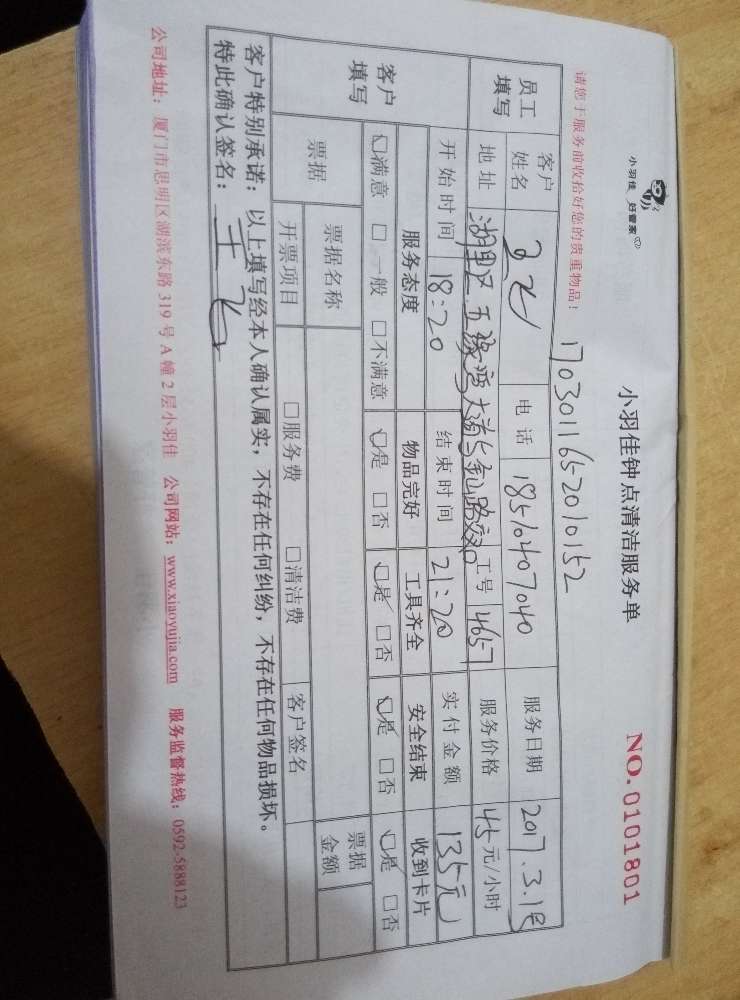 小羽佳 好管家
小羽佳钟点清洁服务单
NO. 0101801
请您于服务前收拾好您的贵重物品！
1703011652010152
员工填写 客户姓名 王飞 电话 18510407040 服务日期 2017.3.1号
地址 湖里区五缘湾大道与金山路交 工号 4657 服务价格 45元/小时
开始时间 18:20 结束时间 21:20 实付金额 135元
客户填写 服务态度 物品完好 工具齐全 安全结束 收到卡片
☑满意 □一般 □不满意 ☑是 □否 ☑是 □否 ☑是 □否 ☑是 □否
票据 票据名称 票据金额
开票项目 □服务费 □清洁费 客户签名
客户特别承诺：以上填写经本人确认属实，不存在任何纠纷，不存在任何物品损坏。
特此确认签名：王飞
公司地址：厦门市思明区湖滨东路 319 号 A 幢 2 层小羽佳 公司网站：www.xiaoyujia.com 服务监督热线：0592-5888123